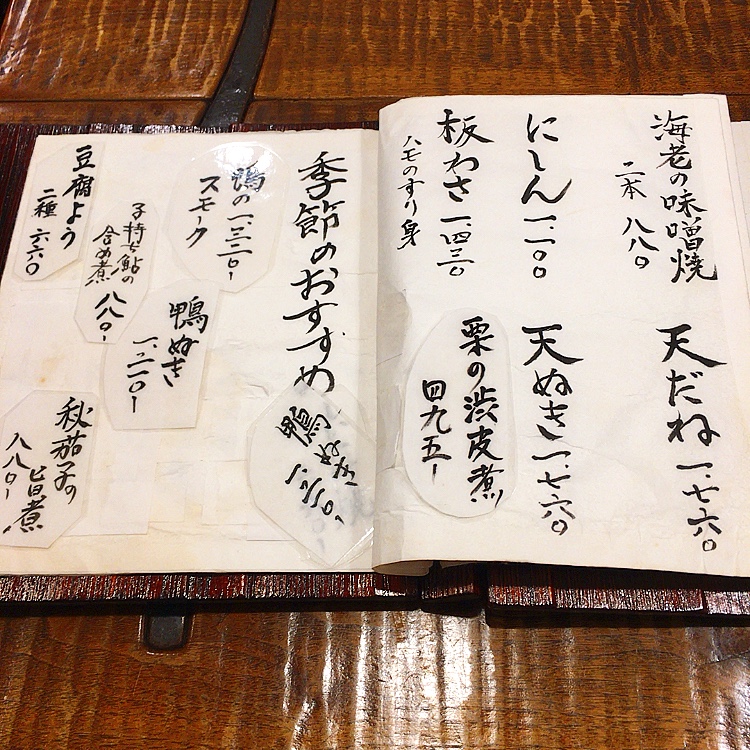 海老の味噌焼
二本 八八〇
天だね 一、七六〇
にしん 一、一〇〇
天ぬき 一、七六〇
板わさ 一、四三〇
ハモのすり身
栗の渋皮煮
四九五ー
季節のおすすめ
鴨ぬき
鴨の
スモーク
鴨ぬき
一、二一〇ー
子持ち鮎の
含め煮
八八〇ー
豆腐よう
二種 六六〇
秋茄子の
旨煮
八八〇ー